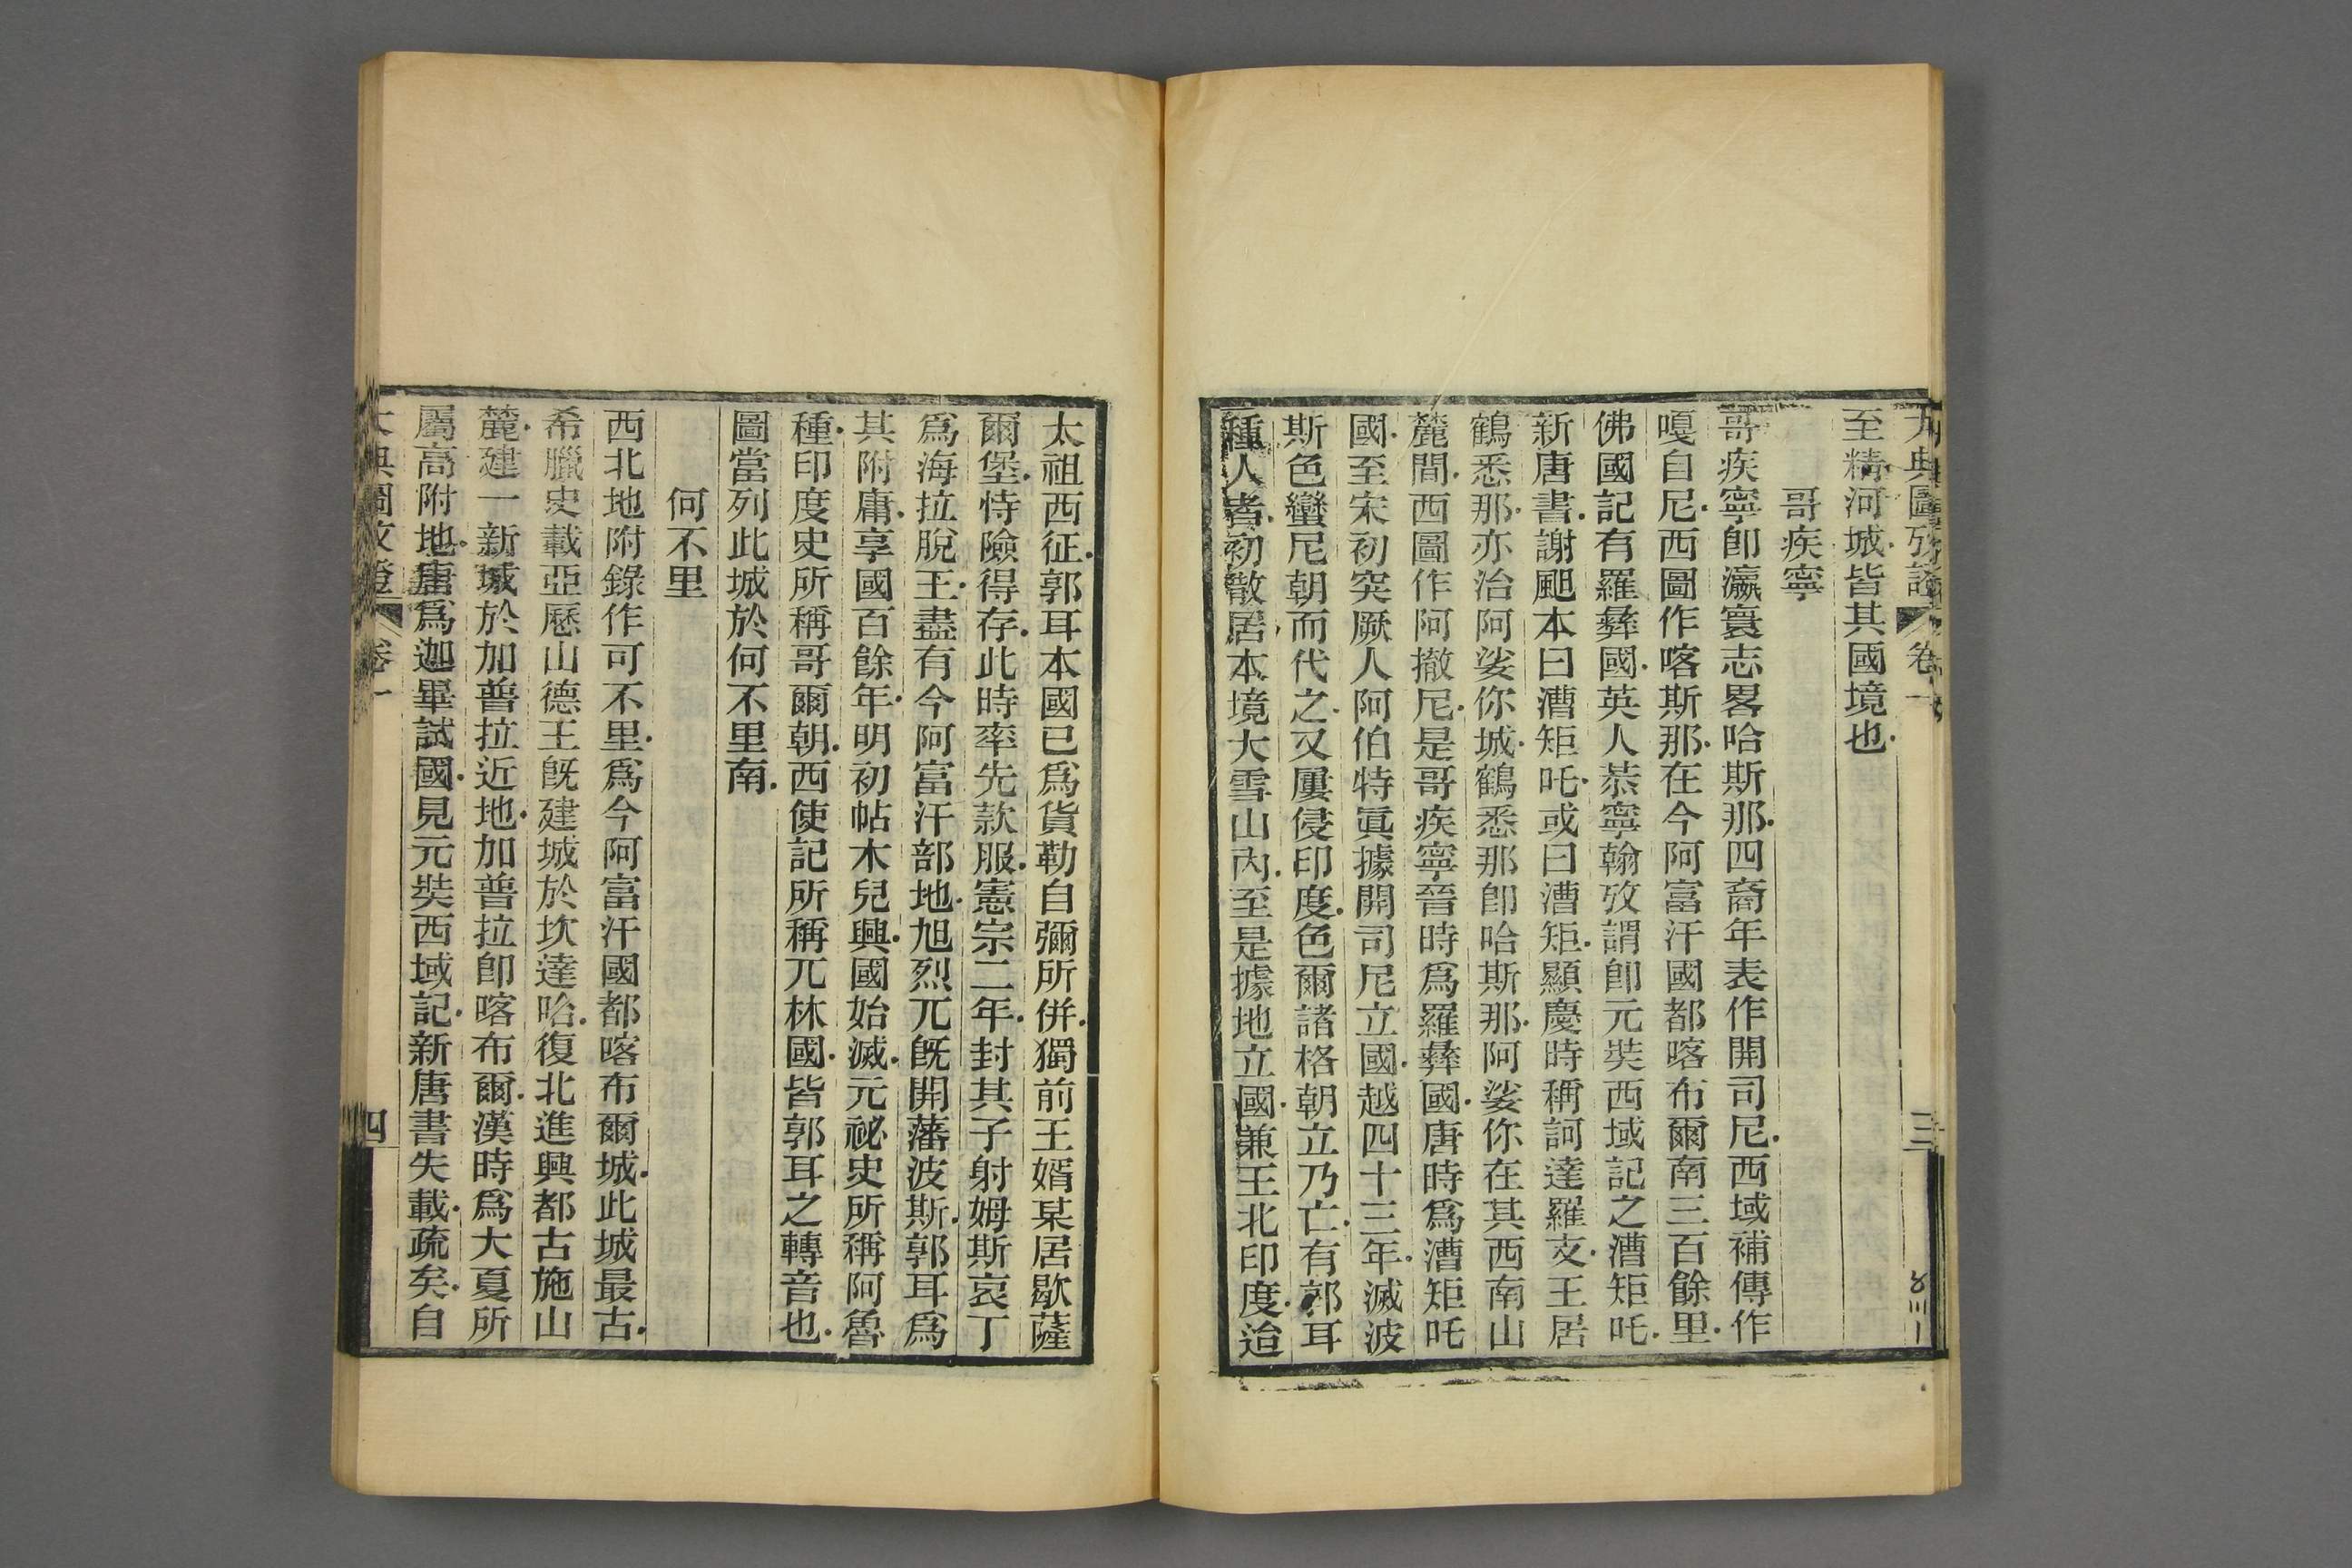 大典圖攷證 卷一 三
至精河城皆其國境也
哥疾寧
哥疾寧卽瀛寰志畧哈斯那四裔年表作開司尼西域補傳作
嘎自尼西圖作喀斯那在今阿富汗國都喀布爾南三百餘里
佛國記有羅彝國英人恭寧翰攷謂卽元奘西域記之漕矩吒
新唐書謝䫻本曰漕矩吒或曰漕矩顯慶時稱訶達羅支王居
鶴悉那亦治阿娑你城鶴悉那卽哈斯那阿娑你在其西南山
麓間西圖作阿撤尼是哥疾寧晉時爲羅彝國唐時爲漕矩吒
國至宋初突厥人阿伯特眞據開司尼立國越四十三年滅波
斯色蠻尼朝而代之又屢侵印度色爾諸格朝立乃亡有郭耳
種人者初散居本境大雪山內至是據地立國兼王北印度迨
太祖西征郭耳本國已爲貨勒自彌所併獨前王婿某居歇薩
爾堡恃險得存此時率先款服憲宗二年封其子射姆斯哀丁
爲海拉脫王盡有今阿富汗部地旭烈兀旣開藩波斯郭耳爲
其附庸享國百餘年明初帖木兒興國始滅元祕史所稱阿魯
種印度史所稱哥爾朝西使記所稱兀林國皆郭耳之轉音也
圖當列此城於何不里南
何不里
西北地附錄作可不里爲今阿富汗國都喀布爾城此城最古
希臘史載亞歷山德王旣建城於坎達哈復北進興都古施山
麓建一新城於加普拉近地加普拉卽喀布爾漢時爲大夏所
屬高附地唐爲迦畢試國見元奘西域記新唐書失載疏矣自
大典圖攷證 卷一 四